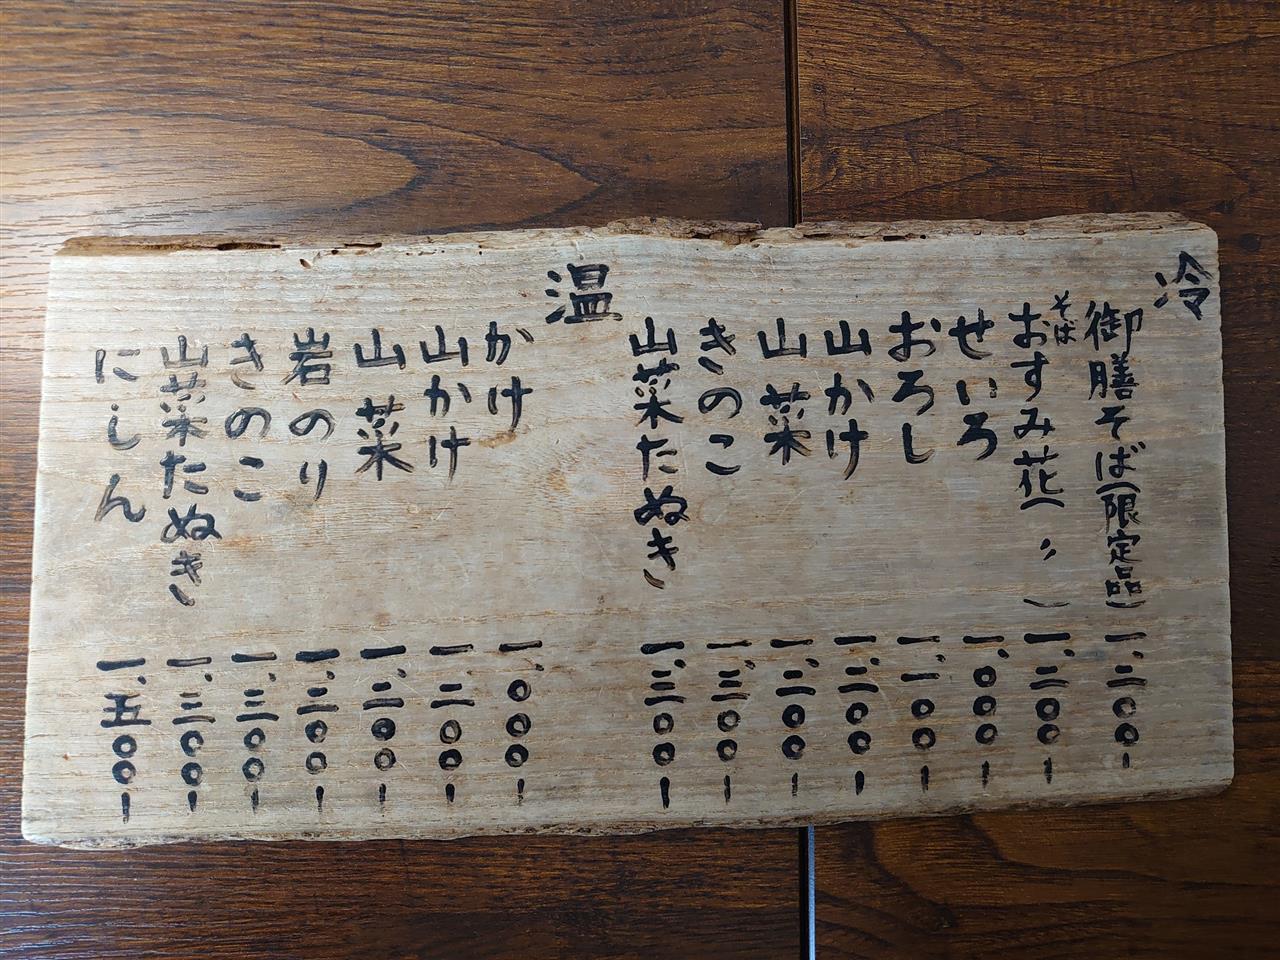 冷
御膳そば(限定品) 一、二〇〇ー
そば
おすみ花(〃) 一、二〇〇ー
せいろ 一、〇〇〇ー
おろし 一、一〇〇ー
山かけ 一、二〇〇ー
山菜 一、二〇〇ー
きのこ 一、三〇〇ー
山菜たぬき 一、三〇〇ー
温
かけ 一、〇〇〇ー
山かけ 一、二〇〇ー
山菜 一、二〇〇ー
岩のり 一、三〇〇ー
きのこ 一、三〇〇ー
山菜たぬき 一、三〇〇ー
にしん 一、五〇〇ー